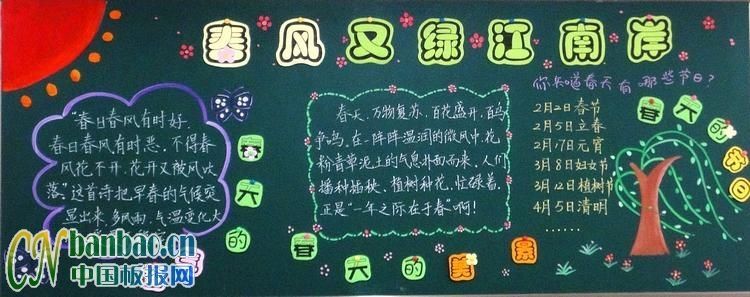 春风又绿江南岸
"春日春风有时好,
春日春风有时恶。不得春
风花不开,花开又被风吹
落。"这首诗把早春的气候突
显出来,多风雨,气温变化大
春天的
春天,万物复苏,百花盛开,百鸟
争鸣。在一阵阵湿润的微风中,花
粉青草泥土的气息扑面而来,人们
播种插秧、植树种花,忙碌着,
正是"一年之际在于春"啊!
春天的美景
你知道春天有哪些节日?
2月2日春节
2月5日立春
2月17日元宵
3月8日妇女节
3月12日植树节
4月5日清明
......
春天的节日
CN banbao.cn
中国板报网